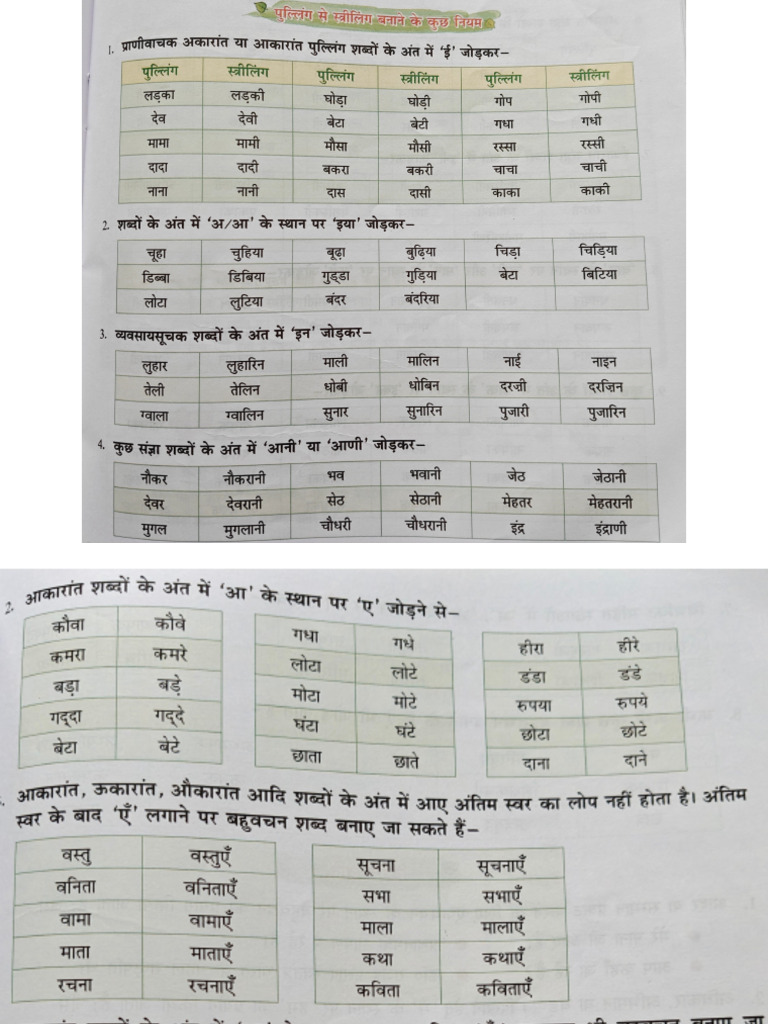 पुल्लिंग से स्त्रीलिंग बताने के कुछ नियम
1. प्राणीवाचक अकारांत या आकारांत पुल्लिंग शब्दों के अंत में 'ई' जोड़कर–
पुल्लिंग स्त्रीलिंग पुल्लिंग स्त्रीलिंग पुल्लिंग स्त्रीलिंग
लड़का लड़की घोड़ा घोड़ी गोप गोपी
देव देवी बेटा बेटी गधा गधी
मामा मामी मौसा मौसी रस्सा रस्सी
दादा दादी बकरा बकरी चाचा चाची
नाना नानी दास दासी काका काकी
2. शब्दों के अंत में 'अ/आ' के स्थान पर 'इया' जोड़कर–
चूहा चुहिया बूढ़ा बुढ़िया चिड़ा चिड़िया
डिब्बा डिबिया गुड्डा गुड़िया बेटा बिटिया
लोटा लुटिया बंदर बंदरिया
3. व्यवसायसूचक शब्दों के अंत में 'इन' जोड़कर–
लुहार लुहारिन माली मालिन नाई नाइन
तेली तेलिन धोबी धोबिन दरज़ी दरज़िन
ग्वाला ग्वालिन सुनार सुनारिन पुजारी पुजारिन
4. कुछ संज्ञा शब्दों के अंत में 'आनी' या 'आणी' जोड़कर–
नौकर नौकरानी भव भवानी जेठ जेठानी
देवर देवरानी सेठ सेठानी मेहतर मेहतरानी
मुगल मुगलानी चौधरी चौधरानी इंद्र इंद्राणी
2. आकारांत शब्दों के अंत में 'आ' के स्थान पर 'ए' जोड़ने से–
कौवा कौवे गधा गधे हीरा हीरे
कमरा कमरे लोटा लोटे डंडा डंडे
बड़ा बड़े मोटा मोटे रुपया रुपये
गद्दा गद्दे घंटा घंटे छोटा छोटे
बेटा बेटे छाता छाते दाना दाने
आकारांत, ऊकारांत, औकारांत आदि शब्दों के अंत में आए अंतिम स्वर का लोप नहीं होता है। अंतिम
स्वर के बाद 'एँ' लगाने पर बहुवचन शब्द बनाए जा सकते हैं–
वस्तु वस्तुएँ सूचना सूचनाएँ
वनिता वनिताएँ सभा सभाएँ
वामा वामाएँ माला मालाएँ
माता माताएँ कथा कथाएँ
रचना रचनाएँ कविता कविताएँ